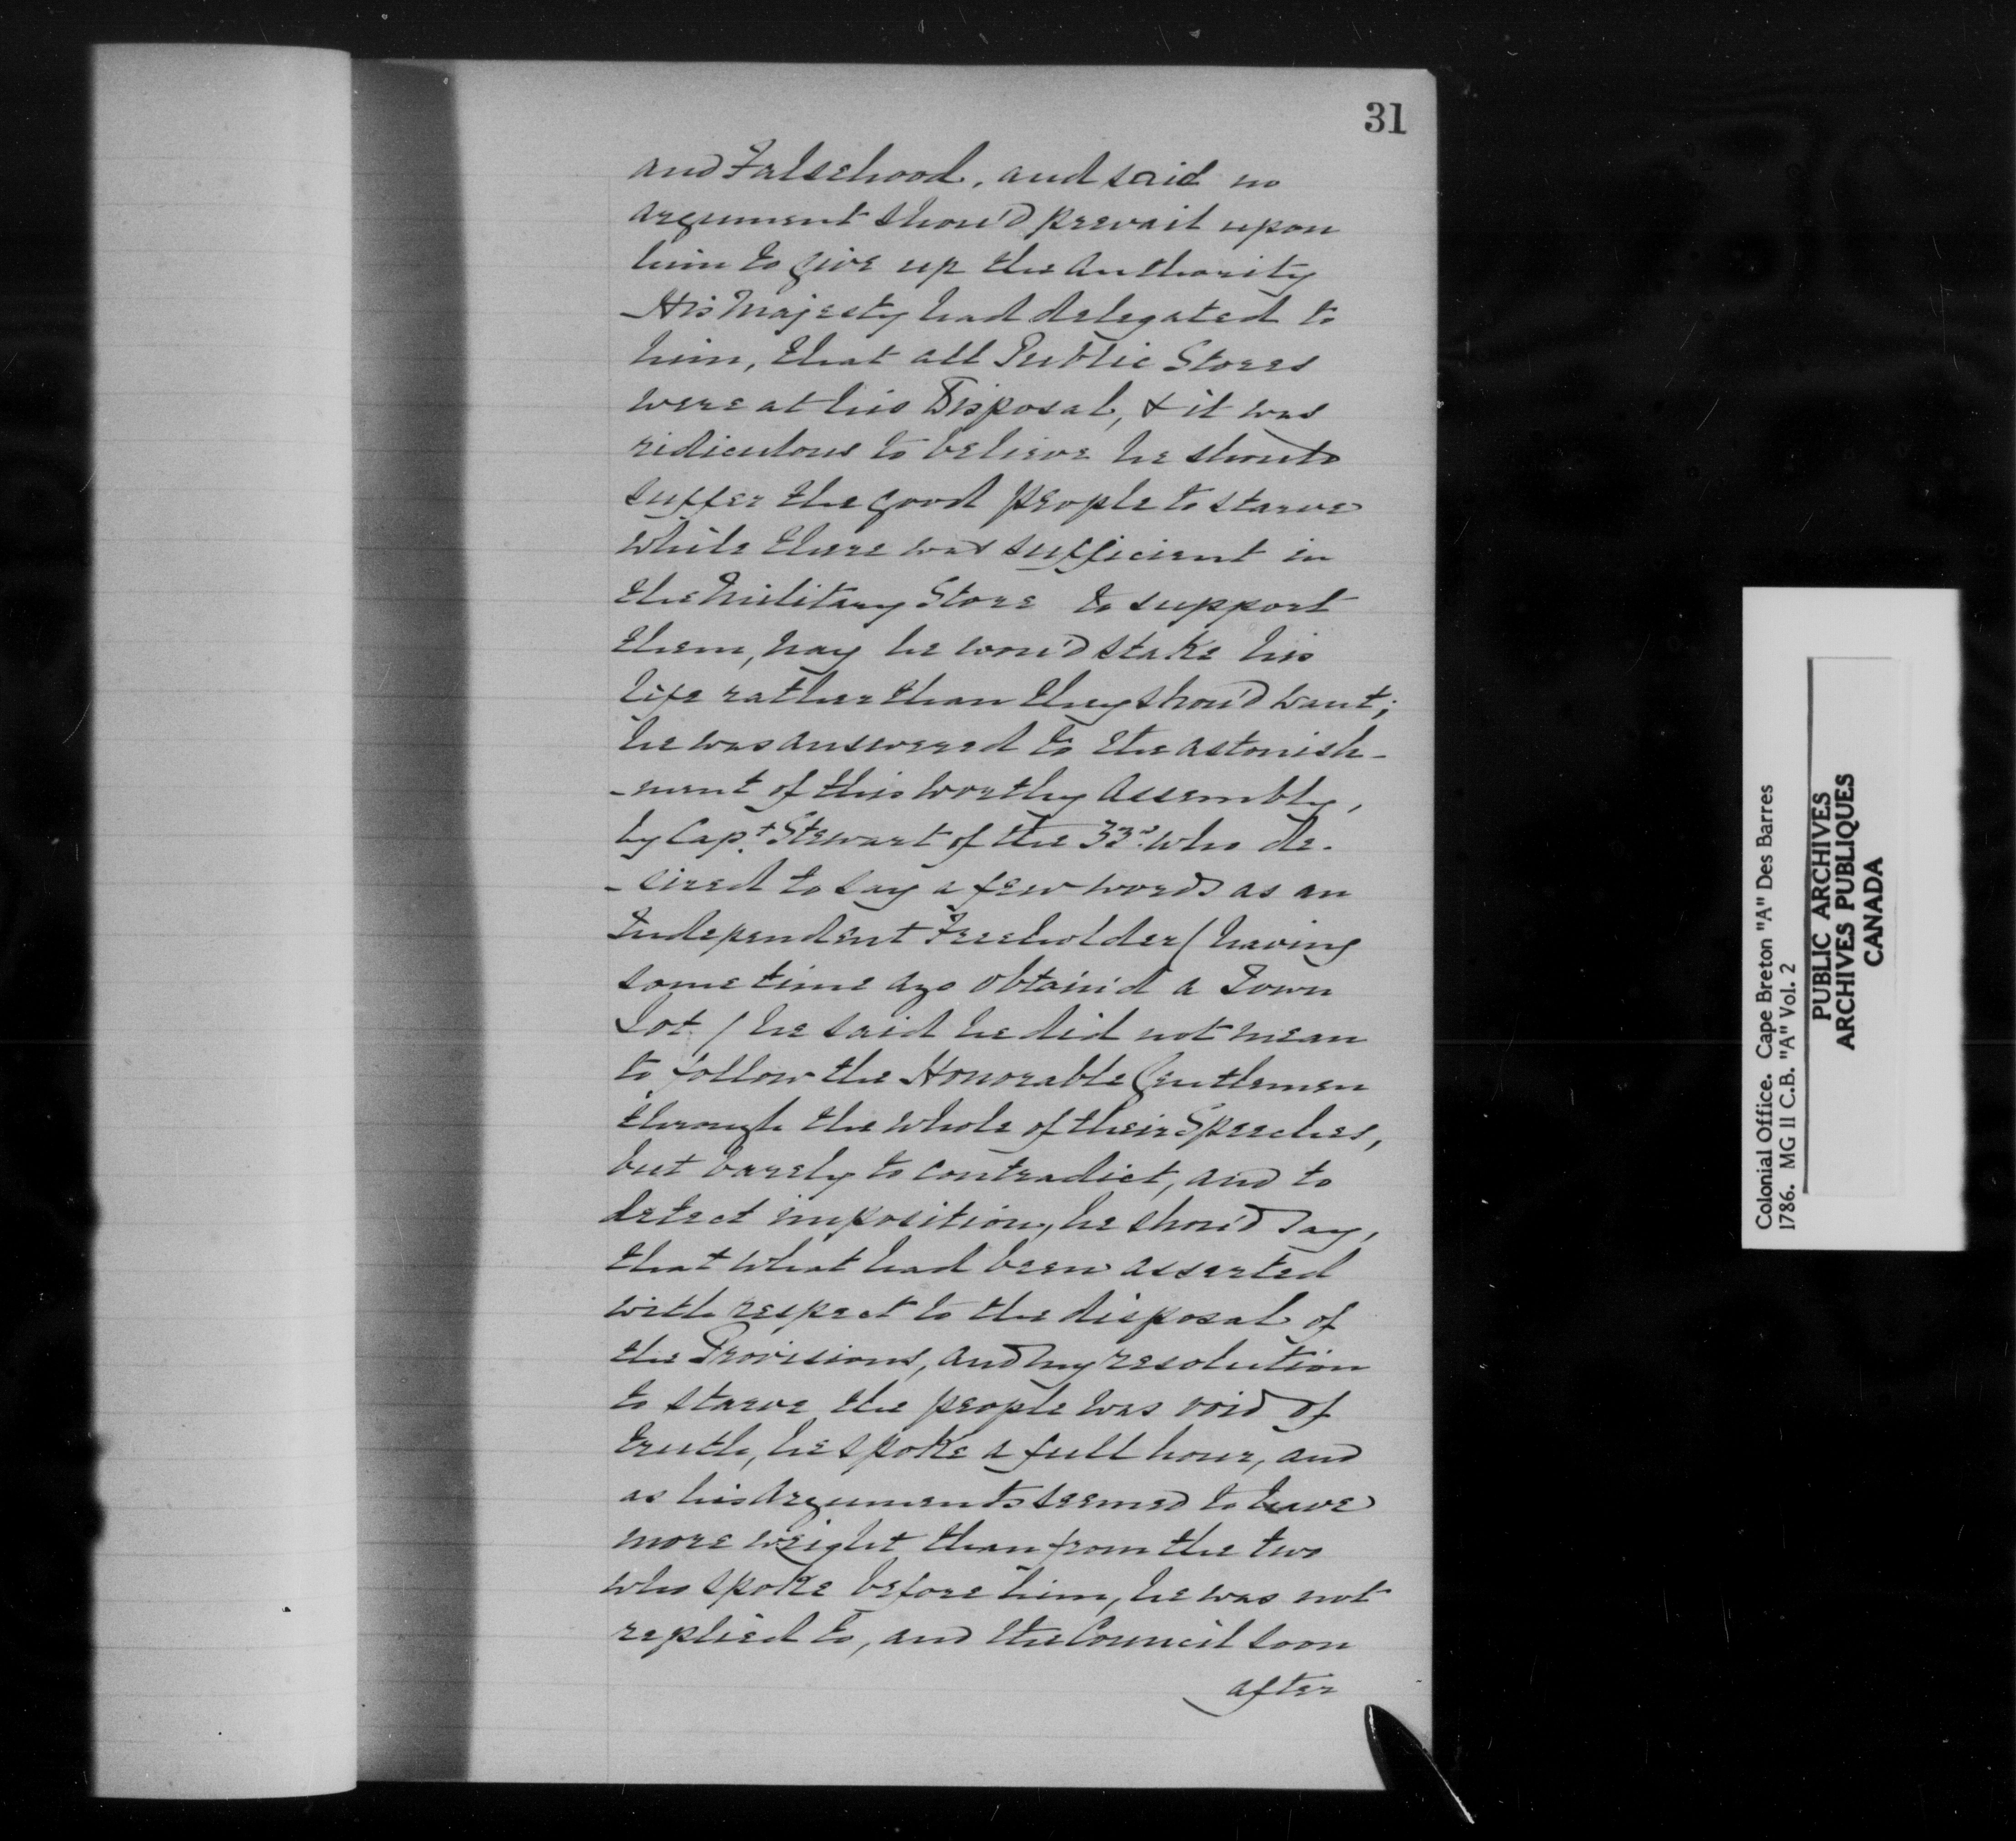 31
and Falsehood, and said no
argument shou'd prevail upon
him to give up the authority
His Majesty had delegated to
him, that all Public Stores
were at his Disposal, & it was
ridiculous to believe he should
suffer the good people to starve
while there was sufficient in
the Military Store to support
them, nay he wou'd stake his
life rather than they shou'd want;
he was answered to the astonish-
-ment of this worthy Assembly,
by Capt. Stewart of the 33d. who de-
-sired to say a few words as an
Independent Freeholder (having
some time ago obtain'd a Town
Lot / he said he did not mean
to follow the Honorable Gentlemen
through the whole of their Speeches,
but barely to contradict, and to
detect imposition, he shou'd say,
that what had been asserted
with respect to the disposal of
the Provisions, and my resolution
to starve the people was void of
truth, he spoke a full hour, and
as his arguments seemed to have
more weight than from the two
who spoke before him, he was not
replied to, and the Council soon
after
Colonial Office. Cape Breton "A" Des Barres
1786. MG 11 C.B. "A" Vol. 2
PUBLIC ARCHIVES
ARCHIVES PUBLIQUES
CANADA